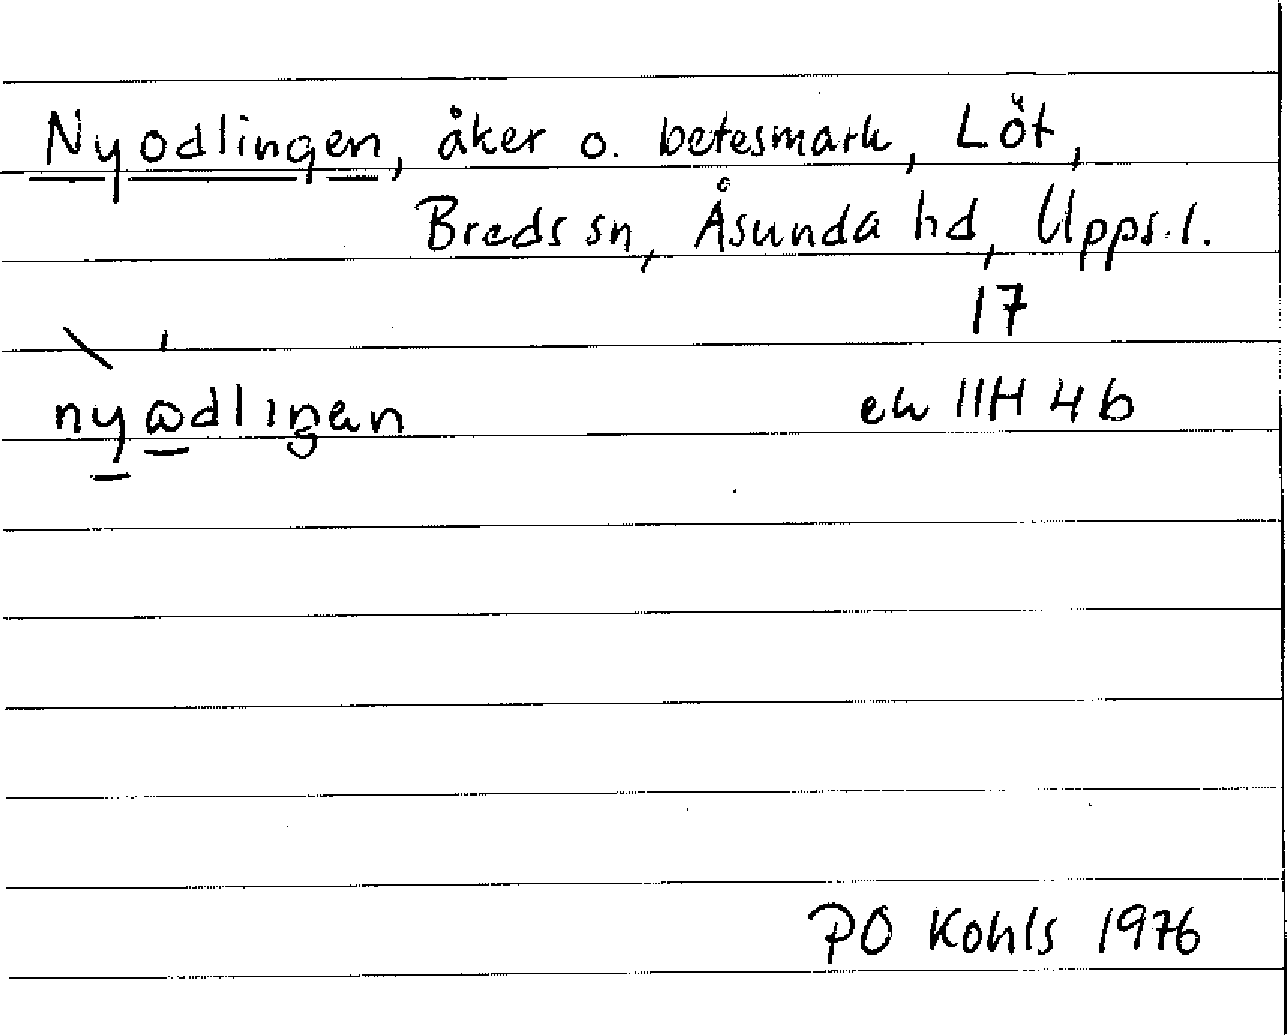 Nyodlingen, åker o. betesmark, Löt,
Breds sn, Åsunda hd, Upps. l.
17
nyɷdlıŋen
ek 11H 4b
PO Kohls 1976